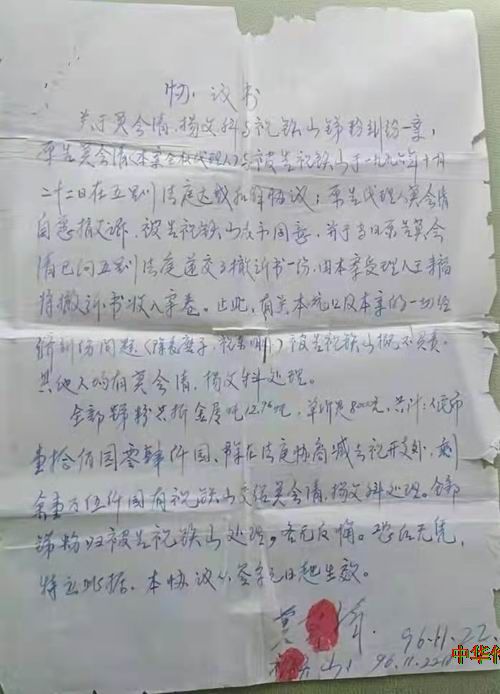 协议书
关于莫会清、杨文科与祝铁山锑粉纠纷一案,
原告莫会清(本案全权代理人)与被告祝铁山于一九九六年十月
二十二日在五里川法庭达成和解协议:原告代理人莫会清
自愿撤诉,被告祝铁山表示同意,并于当日原告莫会
清已向五里川法庭递交了撤诉书一份,由本案受理人王幸福
将撤诉书收入案卷。至此,有关本坑口及本案的一切经
济纠纷问题()被告祝铁山概不负责,
其他人均有莫会清、杨文科处理。
全部锑粉共折金属吨12.76吨,单价是8000元,共计:人民币
壹拾佰园零肆仟园,在法庭协商减去祝开支处,剩
余壹万伍仟园有祝铁山交给莫会清、杨文科处理。全部
锑粉归被告祝铁山处理,各无反悔。恐后无凭,
特立此据。本协议从签字之日起生效。
莫 清. 96.11.22.
铁山 96.11.22日
中华